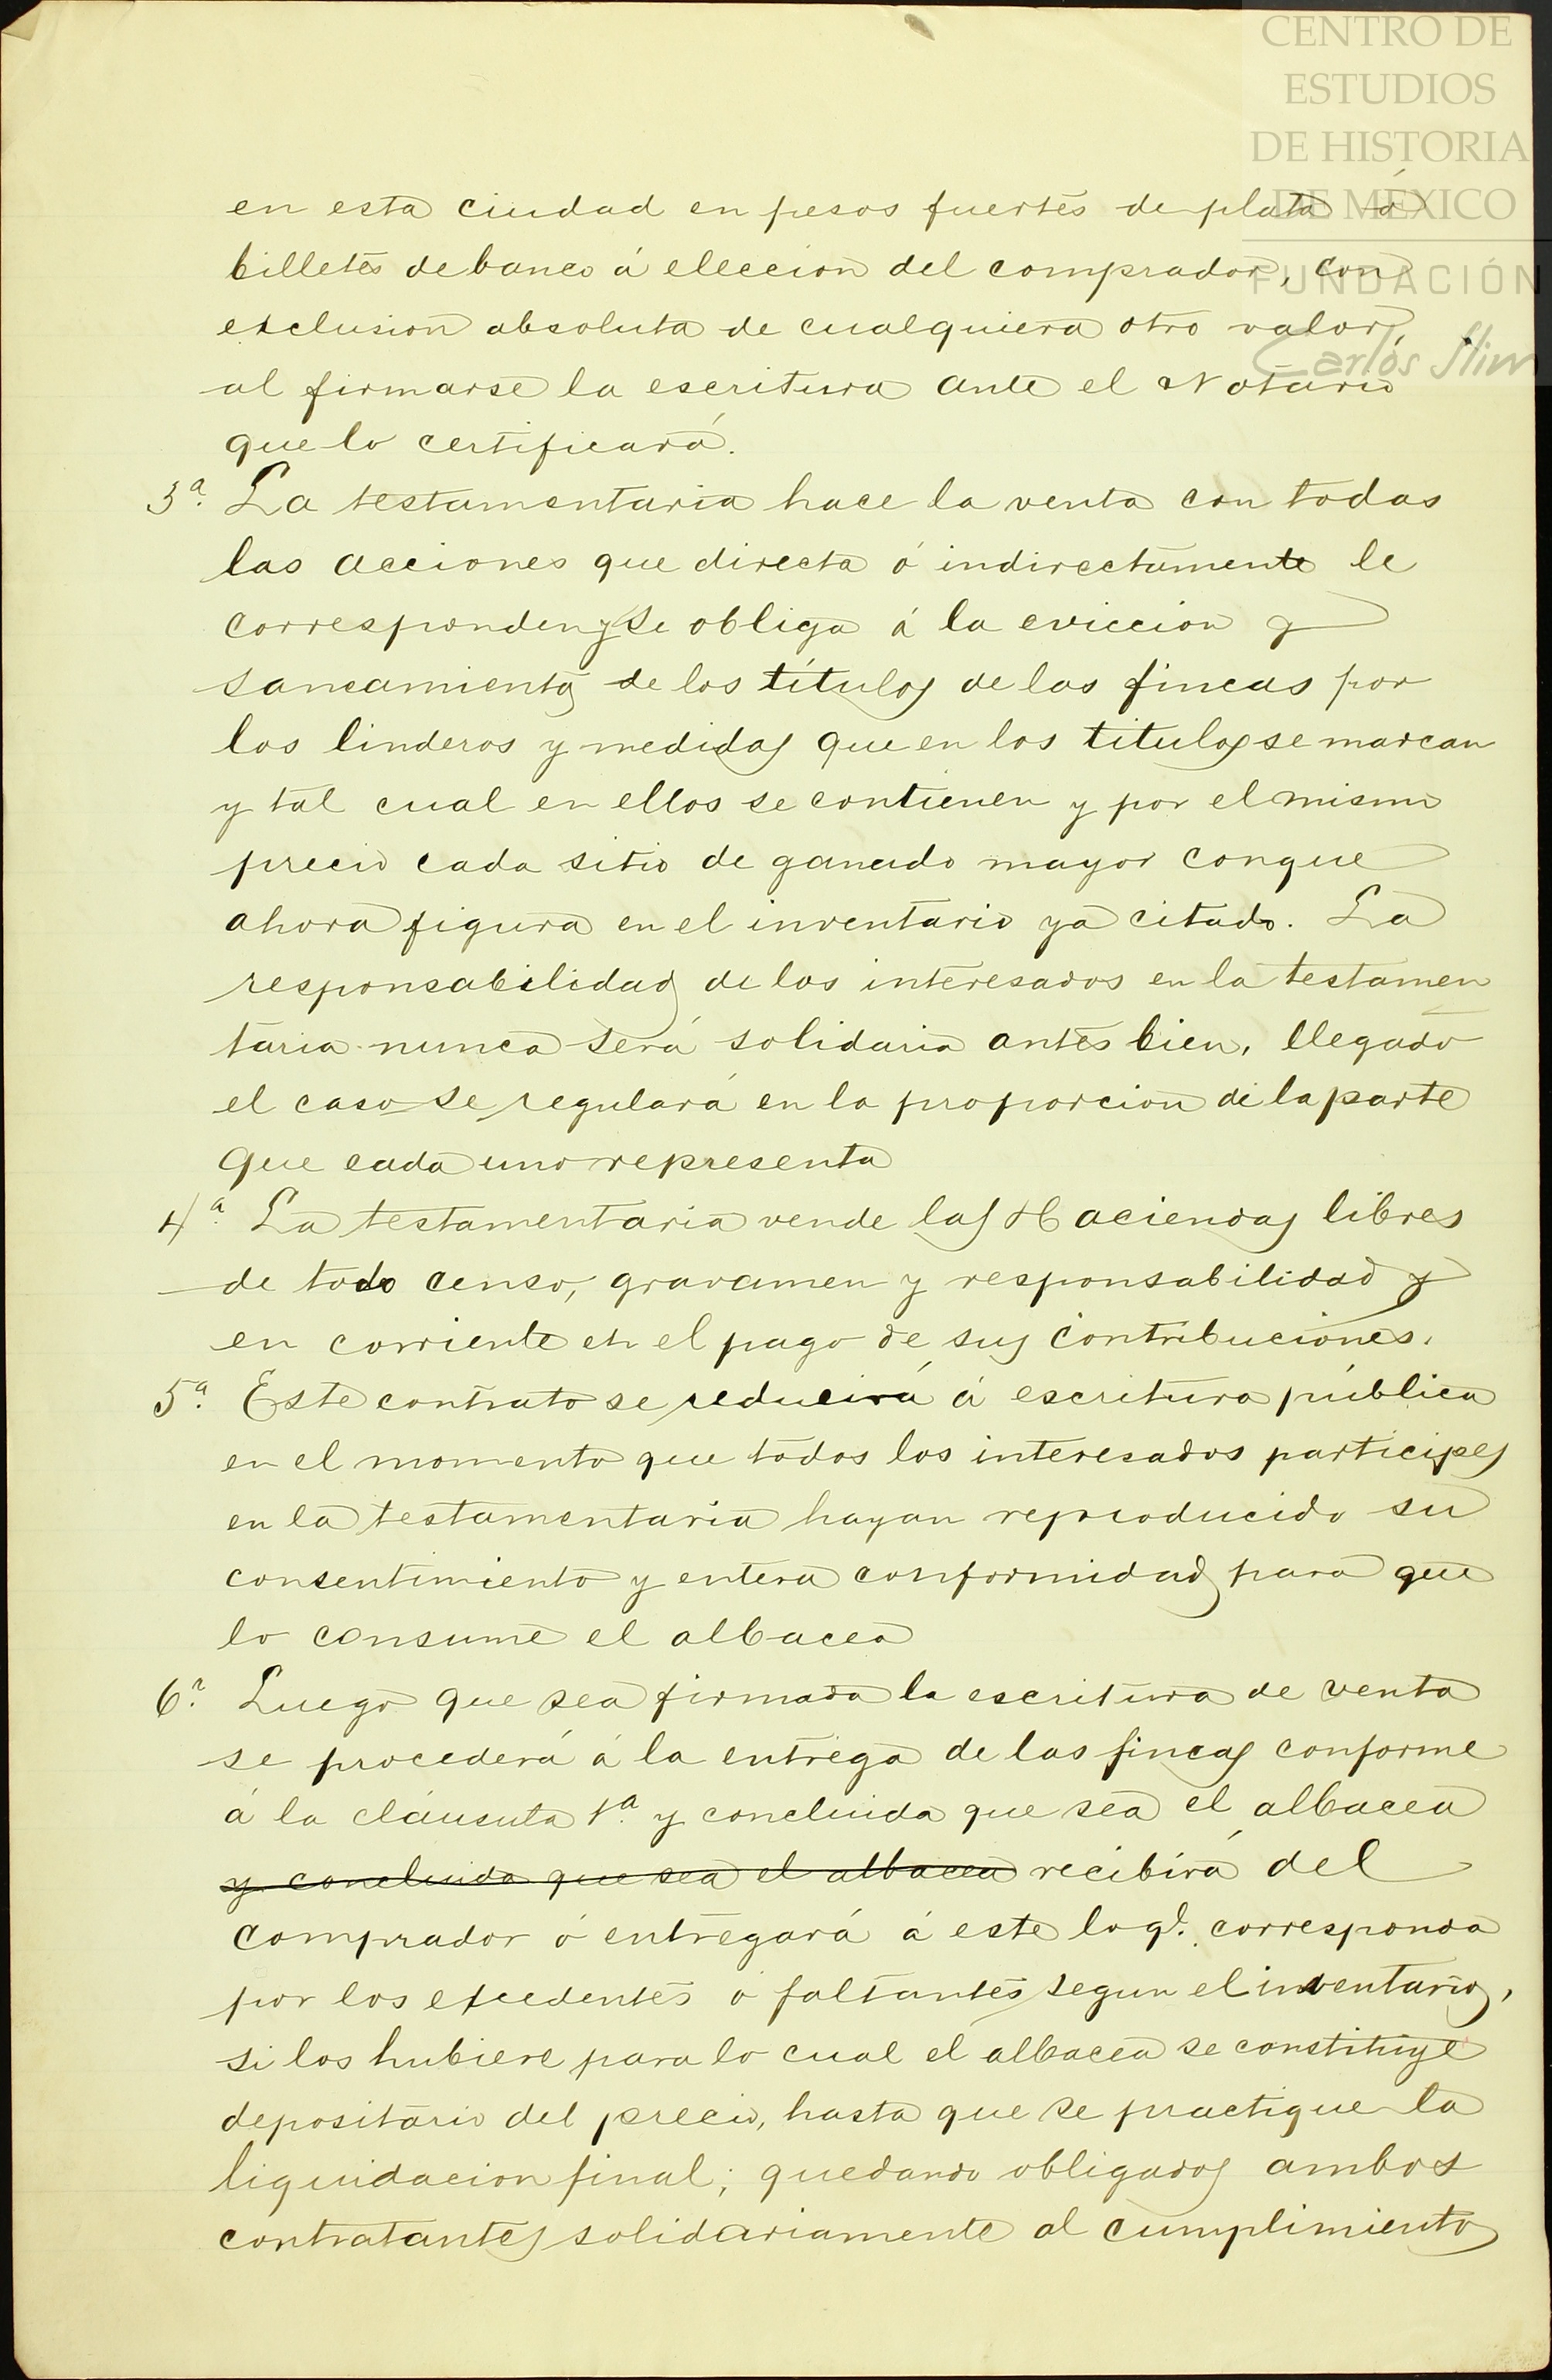 CENTRO DE
ESTUDIOS
DE HISTORIA
DE MÉXICO
FUNDACIÓN
Carlos Slim
en esta ciudad en pesos fuertes de plata ó
billetes de banco á eleccion del comprador, con
exclusion absoluta de cualquiera otro valor,
al firmarse la escritura ante el Notario
que lo certificará.
3ª. La testamentaria hace la venta con todas
las acciones que directa ó indirectamente le
corresponden y se obliga á la eviccion y
saneamiento de los títulos de las fincas por
los linderos y medidas que en los titulos se marcan
y tal cual en ellos se contienen y por el mismo
precio cada sitio de ganado mayor conque
ahora figura en el inventario ya citado. La
responsabilidad de los interesados en la testamen
taria nunca será solidaria antes bien, llegado
el caso se regulará en la proporcion de la parte
que cada uno representa
4ª. La testamentaria vende las Haciendas libres
de todo censo, gravamen y responsabilidad y
en corriente en el pago de sus contribuciones.
5ª. Este contrato se reducirá á escritura pública
en el momento que todos los interesados participes
en la testamentaria hayan reproducido su
consentimiento y entera conformidad para que
lo consume el albacea
6ª. Luego que sea firmada la escritura de venta
se procederá á la entrega de las fincas conforme
á la cláusula 1ª. y concluida que sea el albacea
y concluida que sea el albacea recibirá del
comprador ó entregará á este lo qe. corresponda
por los excedentes ó faltantes segun el inventario,
si los hubiere para lo cual el albacea se constituye
depositario del precio, hasta que se practique la
liquidacion final; quedando obligados ambos
contratantes solidariamente al cumplimiento